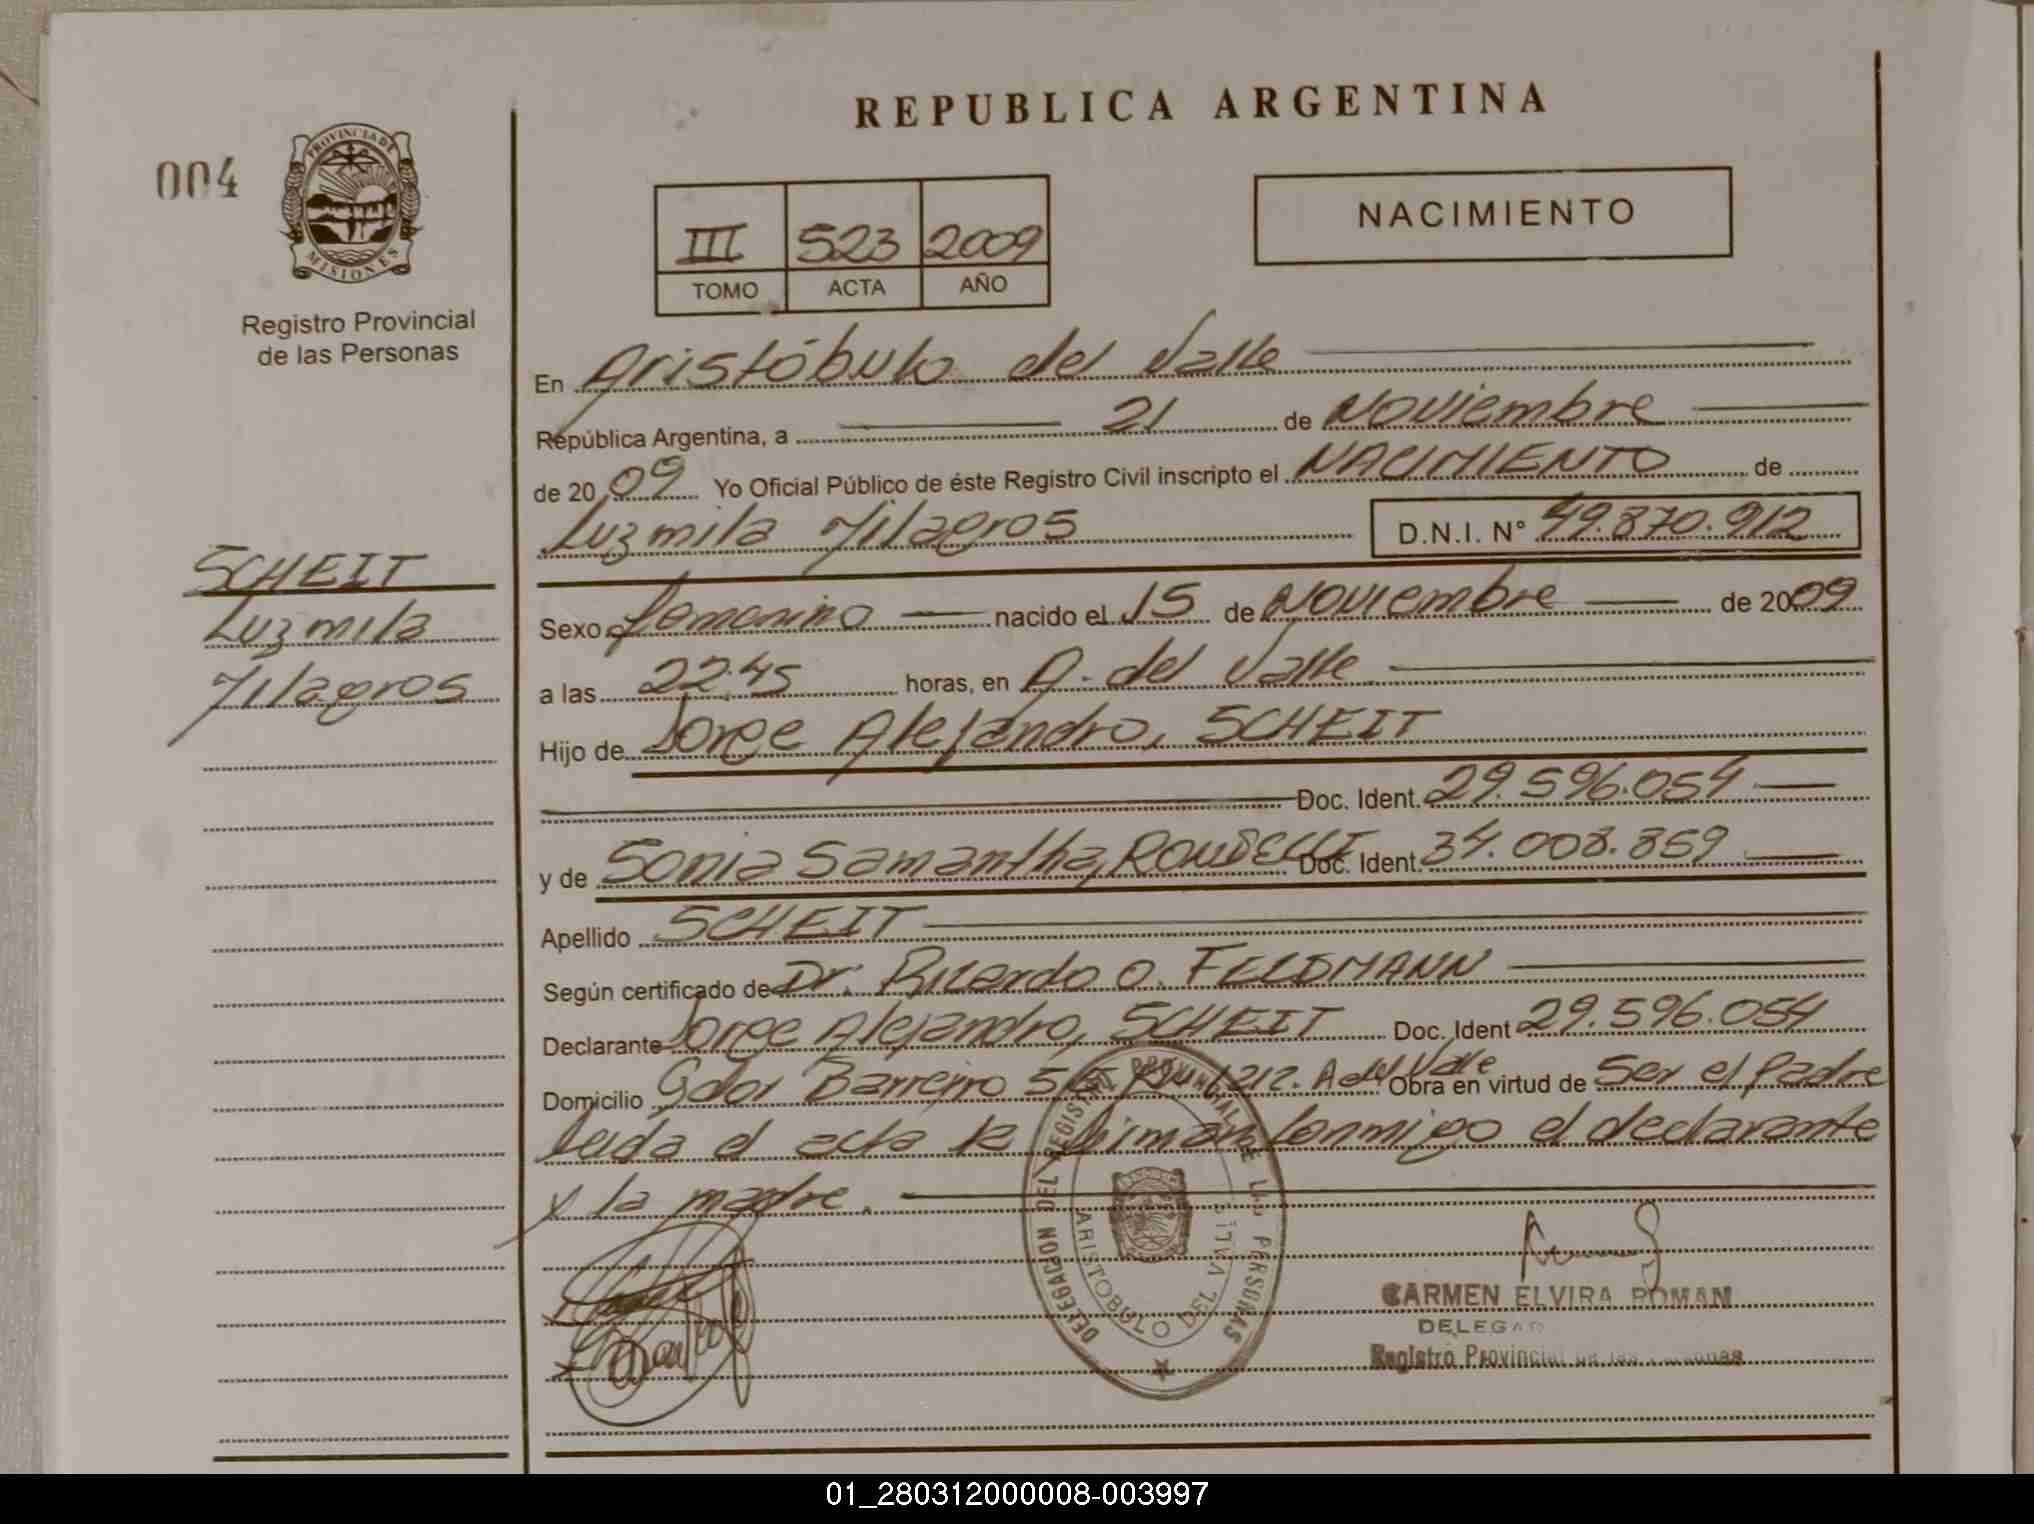 REPUBLICA ARGENTINA
004
PROVINCIA DE
MISIONES
Registro Provincial
de las Personas
III 523 2009
TOMO ACTA AÑO
NACIMIENTO
En Aristóbulo del Valle
República Argentina, a 21 de Noviembre
de 2009 Yo Oficial Público de éste Registro Civil inscripto el NACIMIENTO de
Luzmila Milagros D.N.I. N° 49.870.912
SCHEIT
Luzmila
Milagros
Sexo femenino nacido el 15 de Noviembre de 2009
a las 22:45 horas, en A. del Valle
Hijo de Jorge Alejandro, SCHEIT
Doc. Ident. 29.596.054
y de Sonia Samantha, Doc. Ident. 34.008.859
Apellido SCHEIT
Según certificado de Dr. Ricardo O. FELDMANN
Declarante Jorge Alejandro, SCHEIT Doc. Ident 29.596.054
Domicilio Gdor Barreyro 1212. A del Valle Obra en virtud de Ser el padre
leida el acta la firman conmigo el declarante
y la madre.
DELEGACION DEL REGISTRO PROVINCIAL DE LAS PERSONAS
ARISTOBULO DEL VALLE
CARMEN ELVIRA ROMAN
DELEGAD
Registro Provincial de las Personas
01_280312000008-003997